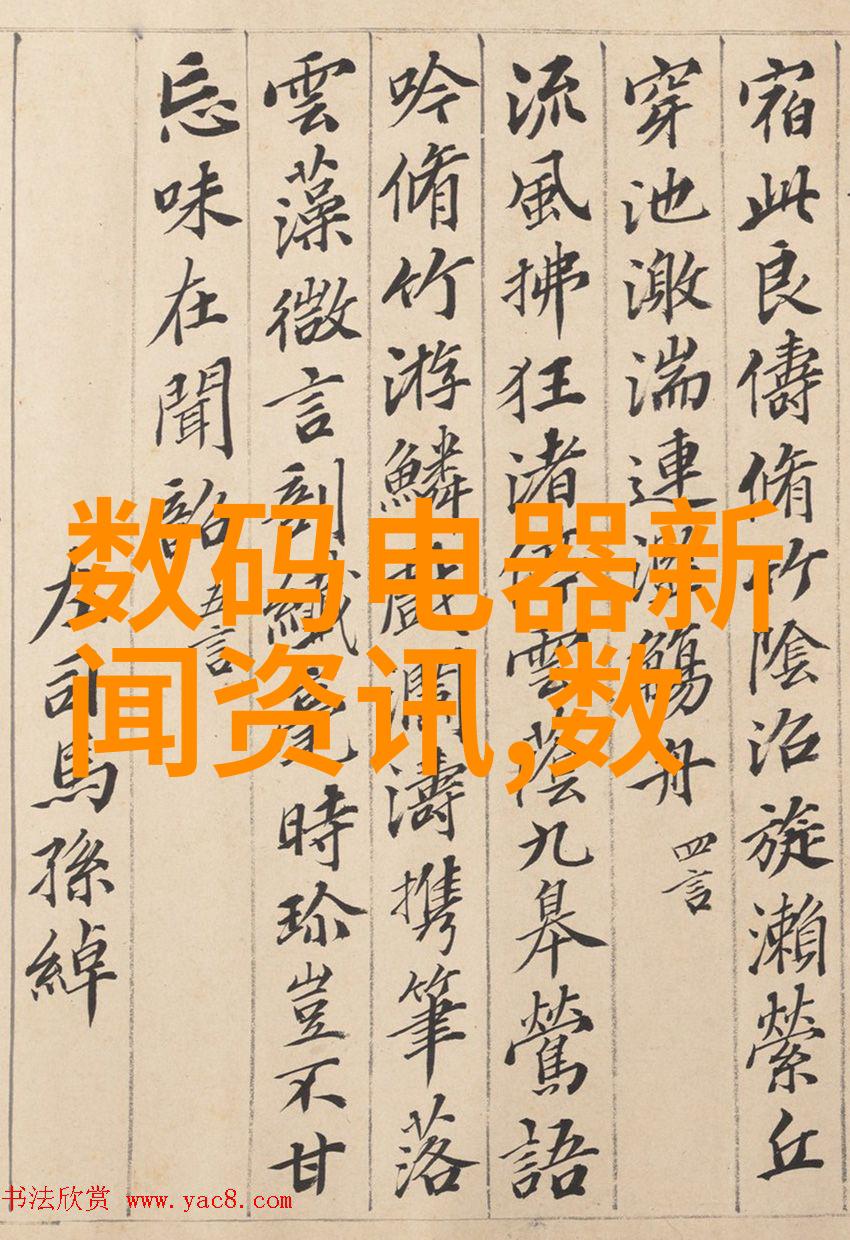 宿此良儔脩竹陰沼旋瀨縈丘
穿池激湍連濫觴舟 四言
流風拂狂渚停雲蔭九皋鶯語
吟脩竹游鱗戲瀾濤携筆落
雲藻微言剖纖毫時珍豈不甘
忘味在聞韶 五言
左司馬孫綽
数码电器新
闻资讯,数
书法欣赏 www.yac8.com